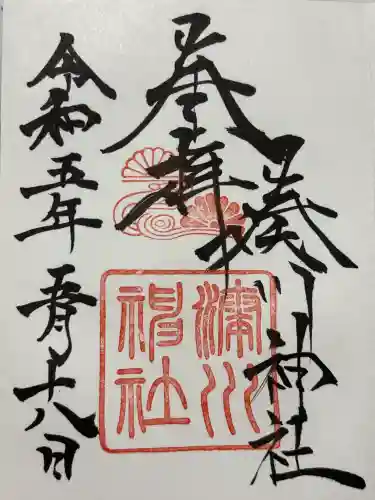 奉拝
湊川神社
湊川
神社
令和五年 五月十八日